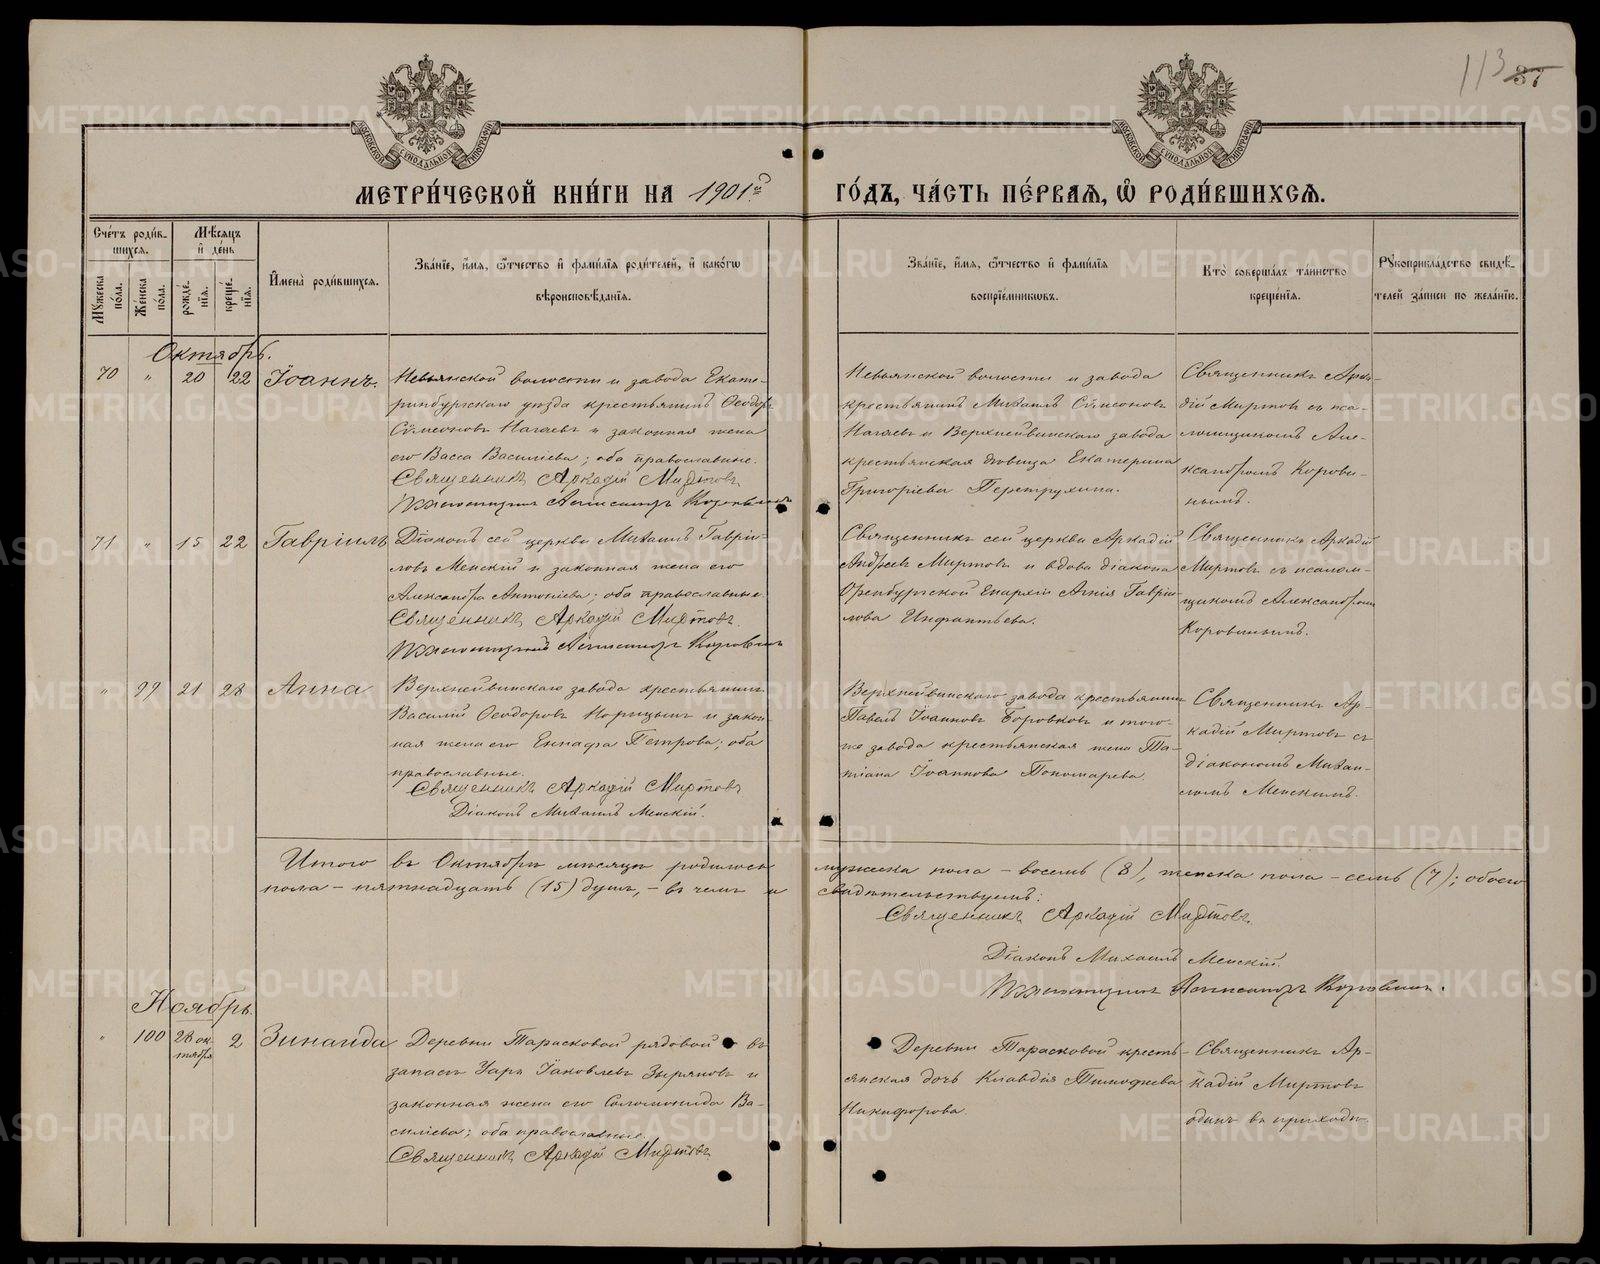 113 37
МЕТРИ́ЧЕСКОЙ КНИ́ГИ НА 1901й ГО́ДЪ, ЧА́СТЬ ПЕ́РВАЯ, Ѽ РОДИ́ВШИХСЯ.
Сче́тъ роди́в-
шихся.
Мѣсяцъ
и҆ де́нь
Мꙋжеска
по́ла.
Же́нска
по́ла.
рожде́-
нїя.
креще́-
нїя.
И҆мена̀ роди́вшихся.
Зва́нїе, и҆́мя, ѻ҆́тчество и҆ фами́лїя роди́телей, и҆ како́гѡ
вѣроисповѣ́данїя.
Зва́нїе, и҆́мя, ѻ҆́тчество и҆ фами́лїя
воспрїе́мникѡвъ.
Кто̀ соверша́лъ та́инство
креще́нїя.
Рꙋкоприкла́дство свидѣ́-
телей за́писи по жела́нїю.
Октябрь.
70 „ 20 22 Іоаннъ.
Невьянской волости и завода Екате-
ринбургскаго уѣзда крестьянинъ Ѳеодоръ
Сѵмеоновъ Нагаевъ и законная жена
его Васса Василіева; оба православные.
Священникъ Аркадій Миртовъ
Псаломщикъ Александръ Коровинъ
Невьянской волости и завода
крестьянинъ Михаилъ Сѵмеоновъ
Нагаевъ и Верхнейвинскаго завода
крестьянская дѣвица Екатерина
Григоріева Перетрухина.
Священникъ Арка-
дій Миртовъ съ пса-
ломщикомъ Але-
ксандромъ Корови-
нымъ.
71 „ 15 22 Гавріилъ
Діаконъ сей церкви Михаилъ Гаврі-
ловъ Менскій и законная жена его
Александра Антоніева; оба православные.
Священникъ Аркадій Миртовъ
Псаломщикъ Александръ Коровинъ
Священникъ сей церкви Аркадій
Андреевъ Миртовъ и вдова діакона
Оренбургской Епархіи Агнія Гаврі-
лова Инфантьева.
Священникъ Аркадій
Миртовъ съ псалом-
щикомъ Александромъ
Коровинымъ.
„ 99 21 28 Анна
Верхнейвинскаго завода крестьянинъ
Василій Ѳеодоровъ Норицынъ и закон-
ная жена его Еннафа Петрова; оба
православные.
Священникъ Аркадій Миртовъ
Діаконъ Михаилъ Менскій.
Верхнейвинскаго завода крестьянинъ
Павелъ Іоанновъ Боровковъ и того-
же завода крестьянская жена Та-
тіана Іоаннова Пономарева.
Священникъ Ар-
кадій Миртовъ съ
діакономъ Михаи-
ломъ Менскимъ.
Итого въ Октябрѣ мѣсяцѣ родилось мужеска пола – восемь (8), женска пола – семь (7); обоего
пола – пятнадцать (15) душъ, – въ чемъ и свидѣтельствуемъ:
Священникъ Аркадій Миртовъ.
Діаконъ Михаилъ Менскій.
Псаломщикъ Александръ Коровинъ.
Ноябрь.
„ 100 28 ок-
тября 2 Зинаида
Деревни Тарасковой рядовой въ
запасѣ Уаръ Іаковлевъ Зыряновъ и
законная жена его Соломонида Ва-
силіева; оба православные.
Священникъ Аркадій Миртовъ
Деревни Тарасковой кресть-
янская дочь Клавдія Тимоѳеева
Никифорова.
Священникъ Ар-
кадій Миртовъ
одинъ въ приходѣ.